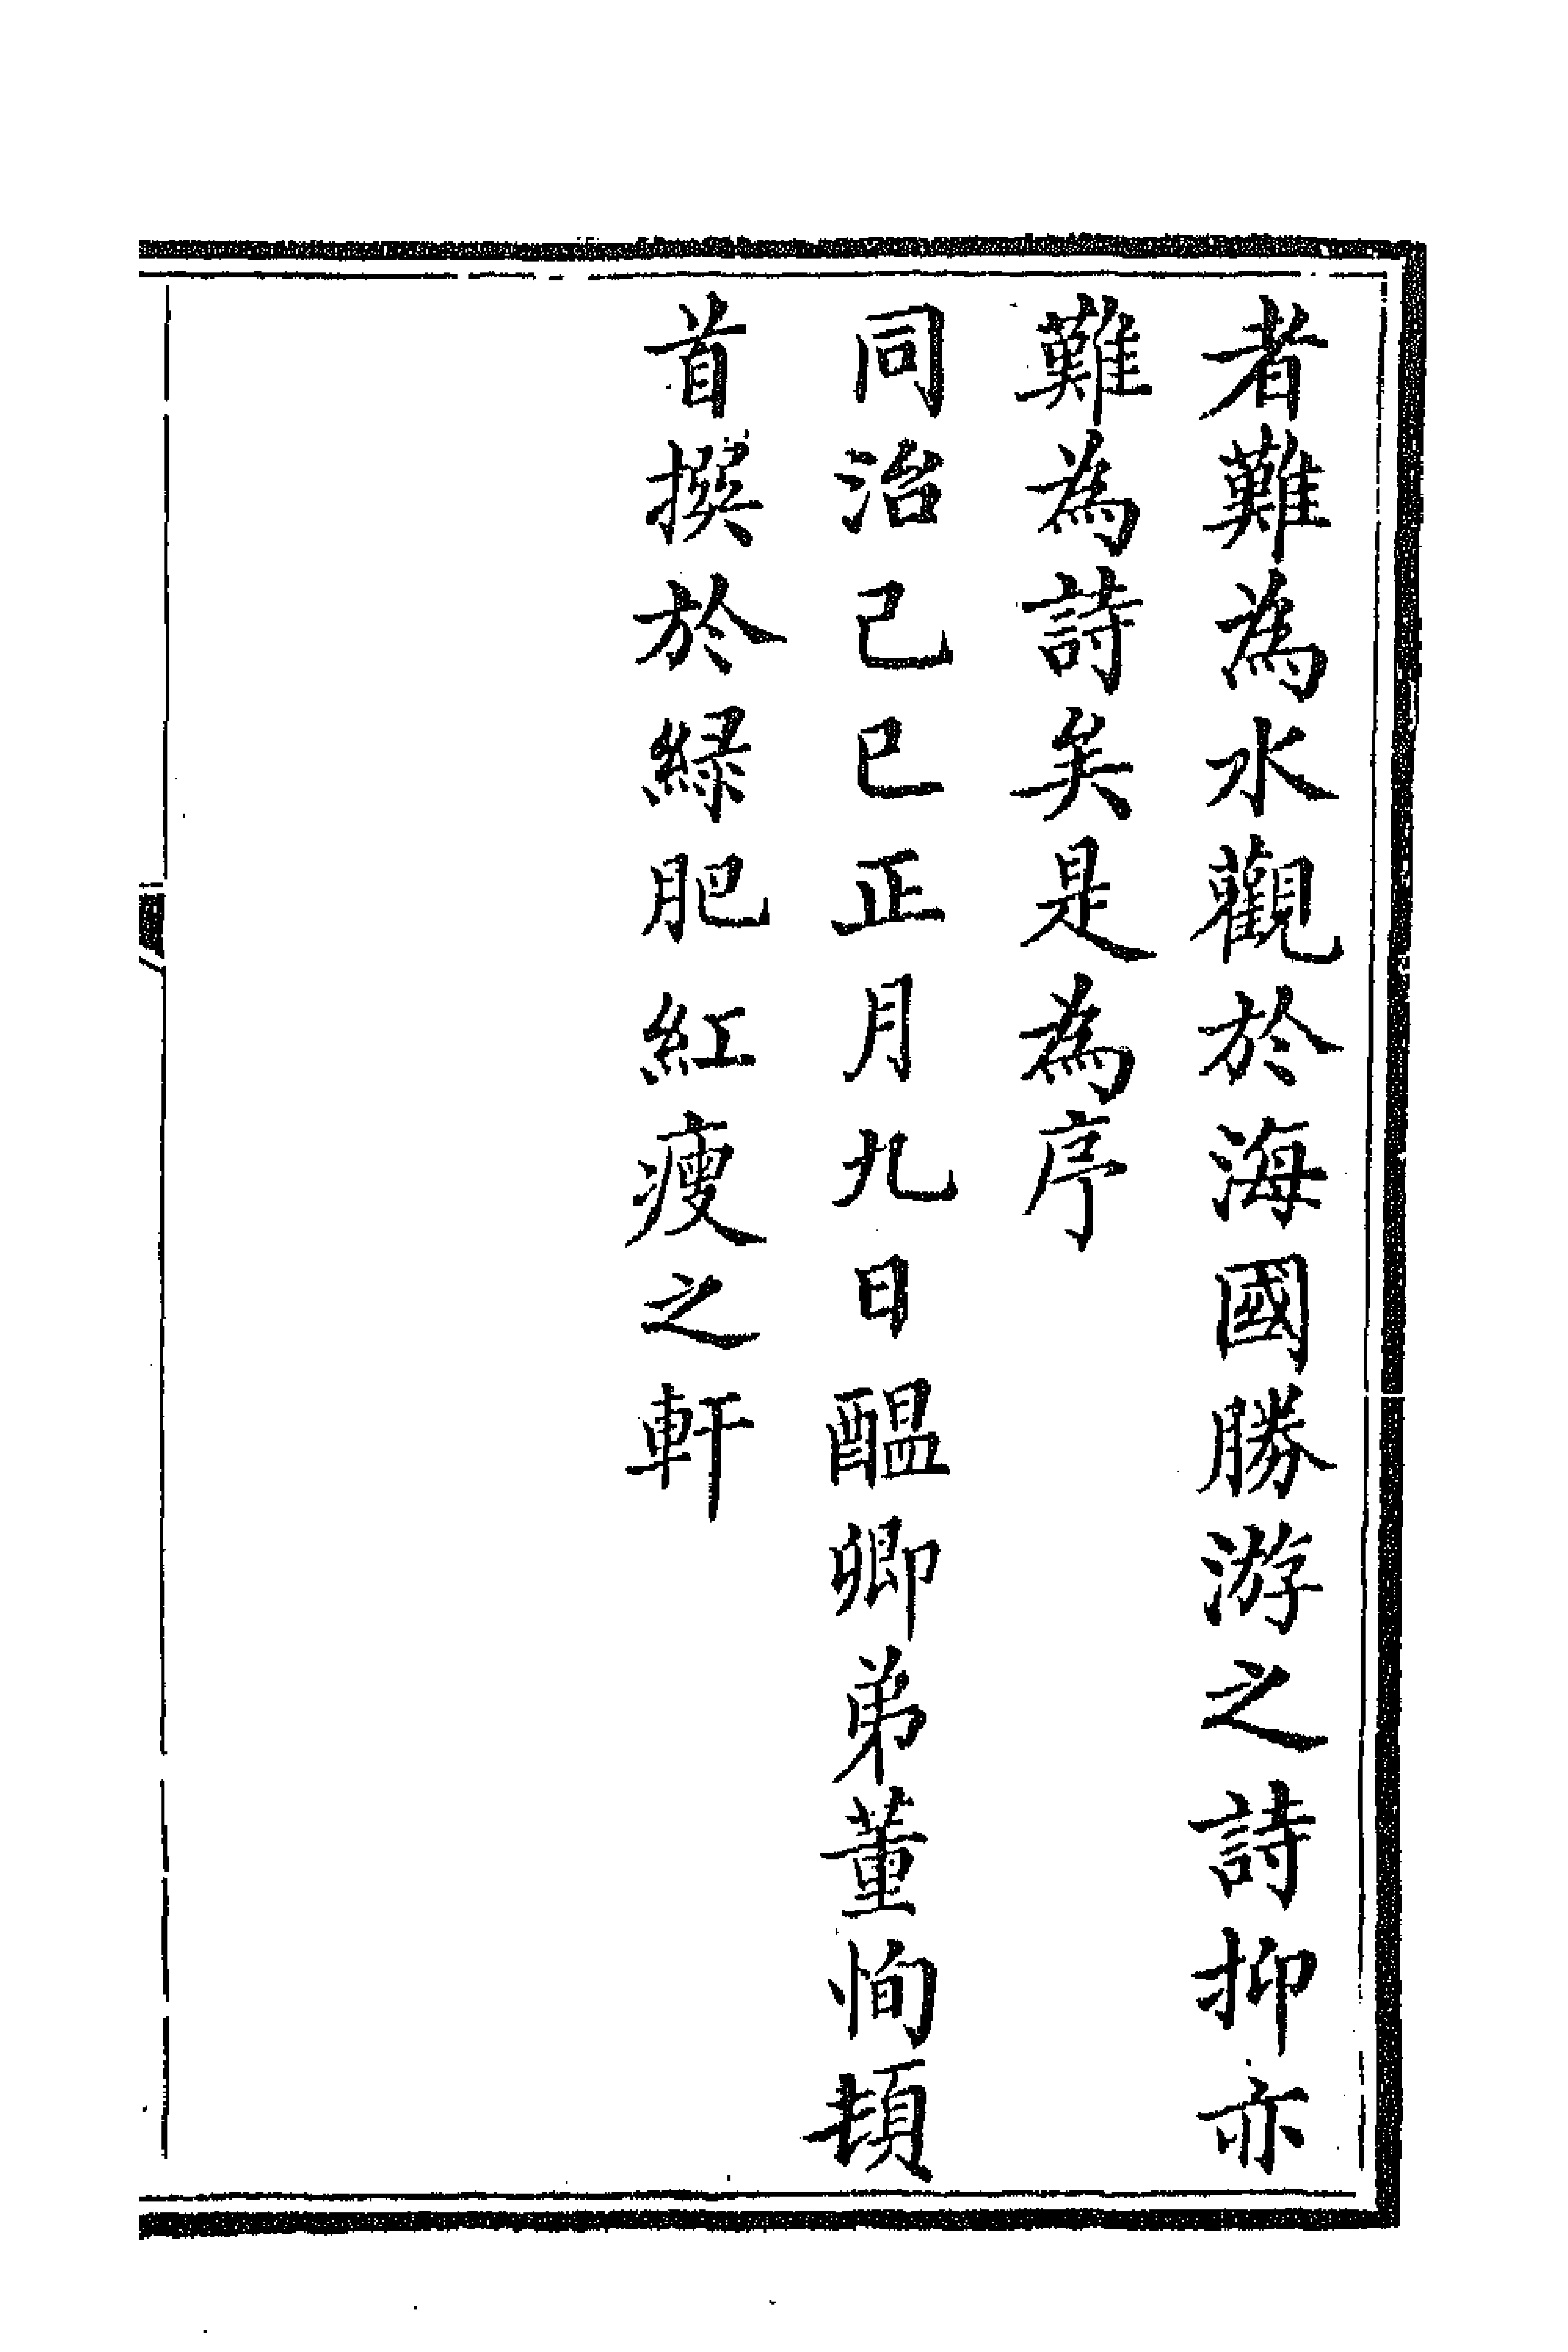 者難為水觀於海國勝游之詩抑亦
難為詩矣是為序
同治己巳正月九日醖卿弟董恂頓
首撰於緑肥紅瘦之軒